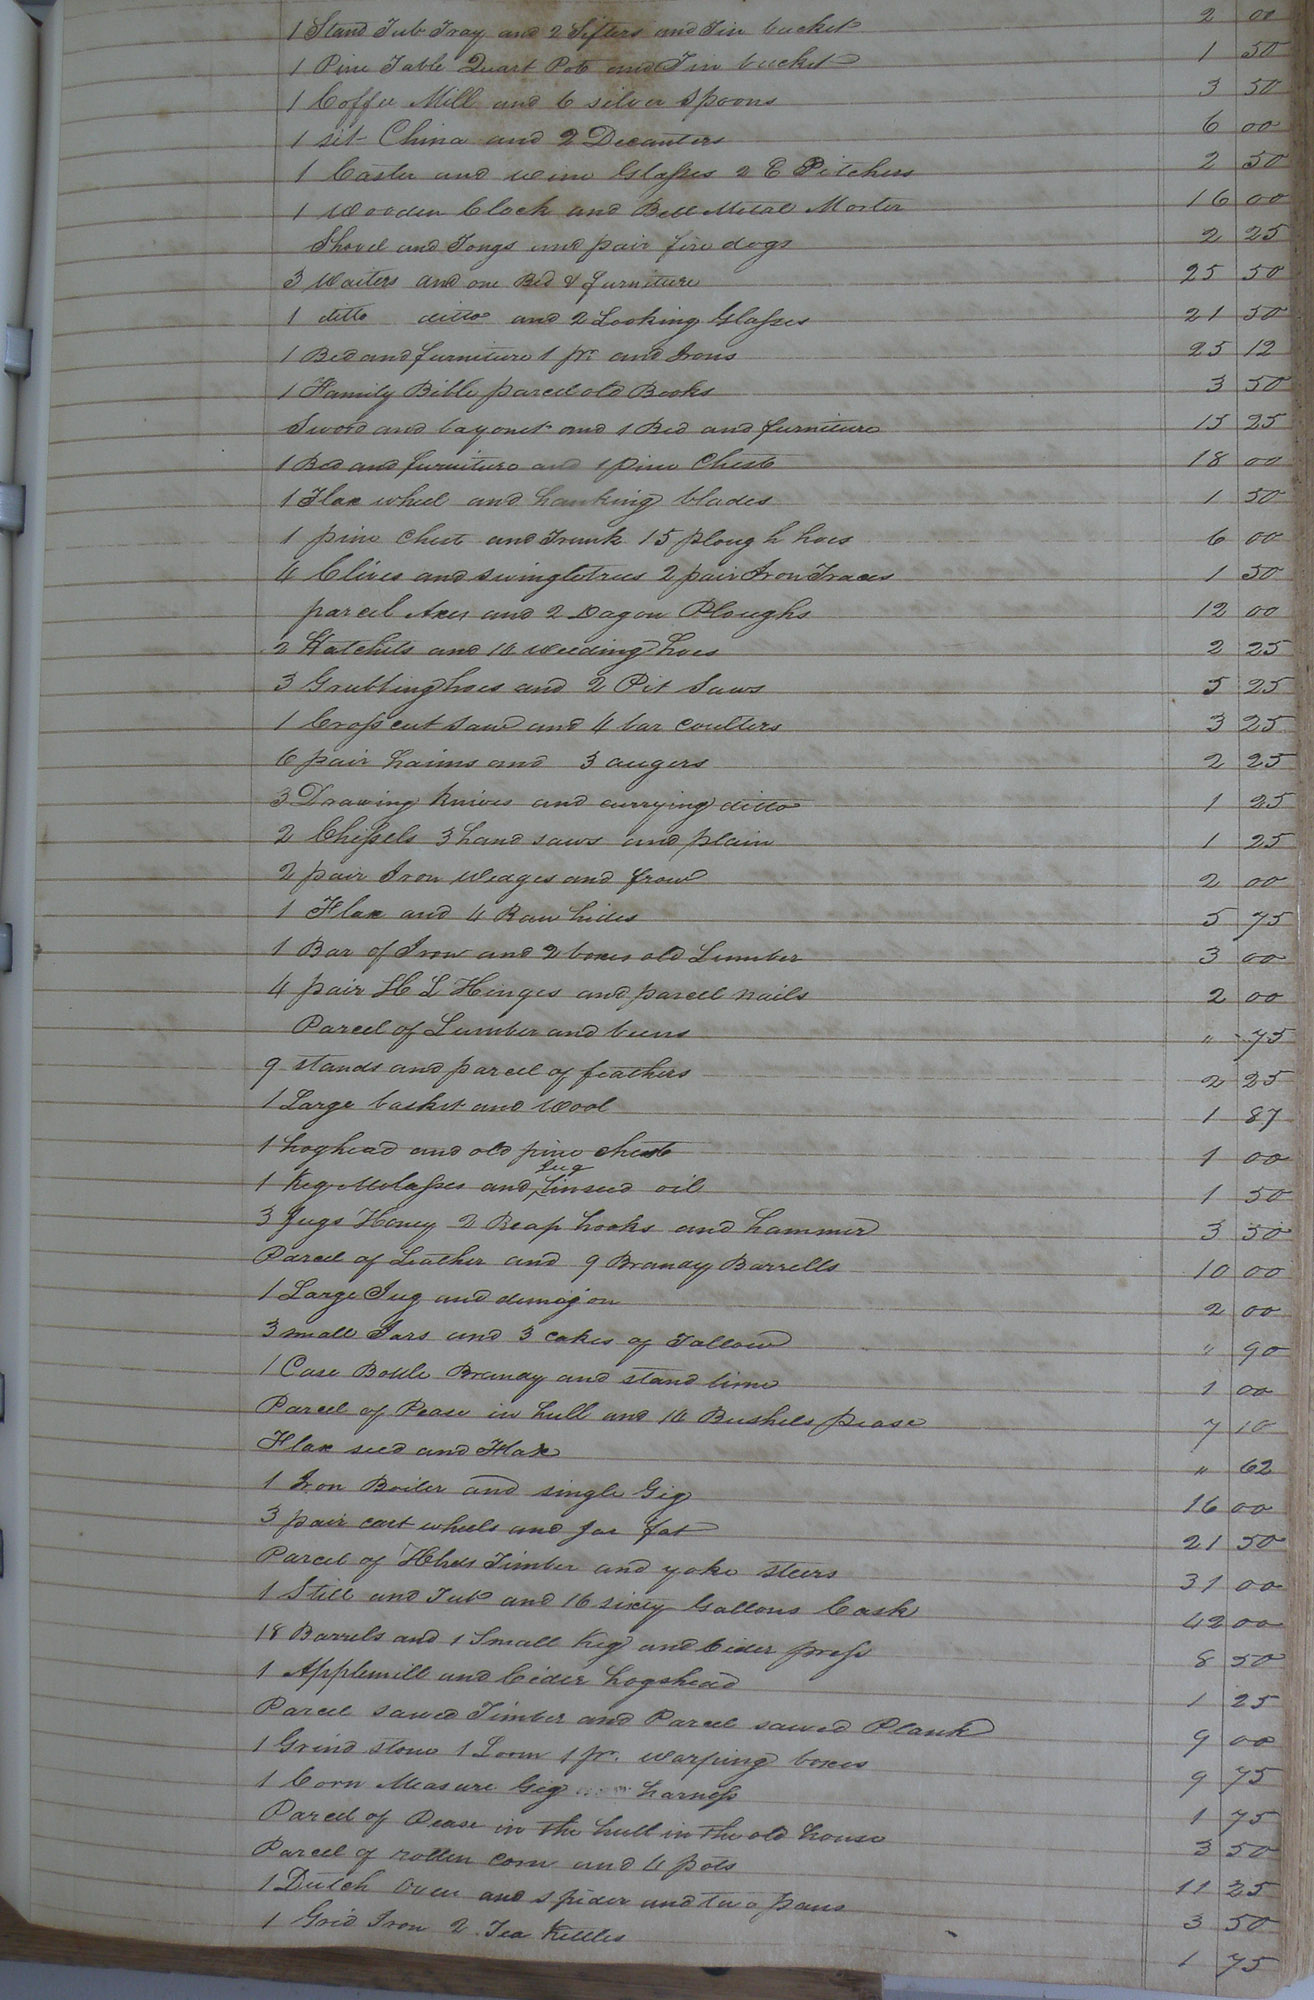 1 Stand Tub Tray and 2 Sifters and Tin bucket 2 00
1 Pine Table Quart Pot and Tin bucket 1 50
1 Coffee Mill and 6 silver Spoons 3 50
1 sit China and 2 Decanters 6 00
1 Caster and wine Glasses 2 C Pitchers 2 50
1 Wooden Clock and Bell Metal Morter 16 00
Shovel and Tongs and pair fire dogs 2 25
3 Waiters and one Bed & furniture 25 50
1 ditto ditto and 2 Looking Glasses 21 50
1 Bed and furniture 1 pr. and Irons 25 12
1 Family Bible parcel old Books 3 50
Sword and bayonet and 1 Bed and furniture 15 25
1 Bed and furniture and 1 pine Chest 18 00
1 Flax wheel and hanking blades 1 50
1 pine Chest and Trunk 15 plough hoes 6 00
4 Clives and swingletrees 2 pair Iron Traces 1 50
parcel Axes and 2 Dagon Ploughs 12 00
2 Hatchets and 10 weeding hoes 2 25
3 Grubbing hoes and 2 Pit Saws 5 25
1 Cross cut Saw and 4 bar coulters 3 25
6 pair haims and 3 augers 2 25
3 Drawing knives and currying ditto 1 25
2 Chissels 3 hand saws and plain 1 25
2 pair Iron Wedges and frow 2 00
1 Flax and 4 Raw hides 5 75
1 Bar of Iron and 2 boxes old Lumber 3 00
4 pair H L Hinges and parcel nails 2 00
Parcel of Lumber and beens " 75
9 stands and parcel of feathers 2 25
1 Large basket and Wool 1 87
1 hoghead and old pine chest 1 00
1 Keg Molasses and Jug linseed oil 1 50
3 Jugs Honey 2 Reap hooks and hammer 3 50
Parcel of Leather and 9 Brandy Barrells 10 00
1 Large Jug and demojon 2 00
3 mall Jars and 3 cakes of Tallow " 90
1 Case Bottle Brandy and stand lime 1 00
Parcel of Pease in hull and 10 Bushels pease 7 10
Flax seed and Flax " 62
1 Iron Boiler and single Gig 16 00
3 pair cart wheels and Jar fat 21 50
Parcel of Hhds Timber and yoke steers 31 00
1 Still and Tub and 16 sixty Gallons Cask 42 00
18 Barrels and 1 Small Keg and Cider press 8 50
1 Applemill and Cider hogshead 1 25
Parcel sawed Timber and Parcel sawed Plank 9 00
1 Grind stone 1 Loom 1 pr. warping boxes 9 75
1 Corn Measure Gig harness 1 75
Parcel of Pease in the hull in the old house 3 50
Parcel of rotten corn and 4 pots 11 25
1 Dutch Oven and spider and two pans 3 50
1 Grid Iron 2 Tea Kettles 1 75